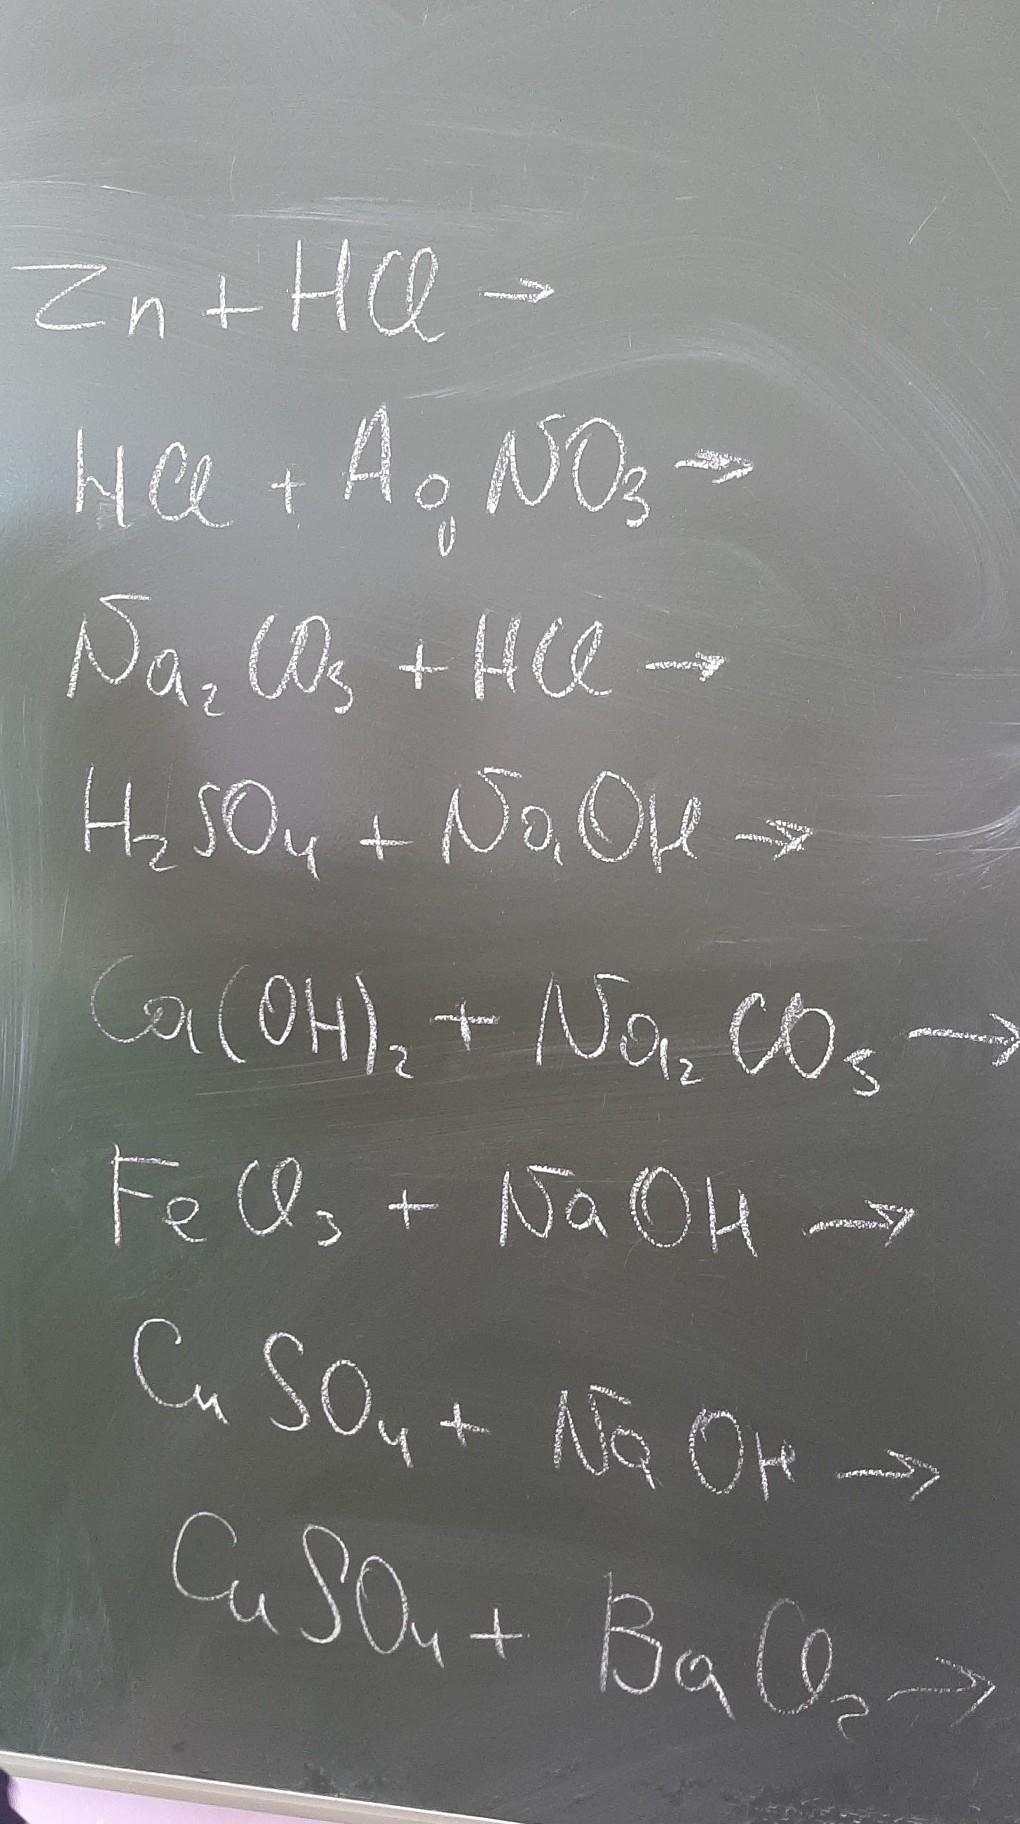 Zn + HCl →
HCl + AgNO₃ →
Na₂CO₃ + HCl →
H₂SO₄ + NaOH →
Ca(OH)₂ + Na₂CO₃ →
FeCl₃ + NaOH →
CuSO₄ + NaOH →
CuSO₄ + BaCl₂ →